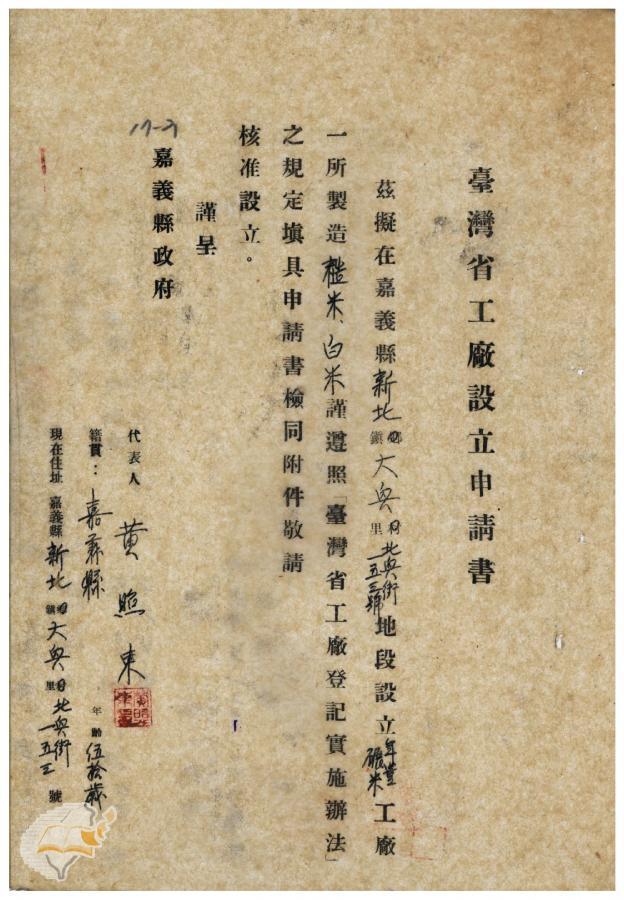 臺灣省工廠設立申請書
茲擬在嘉義縣新北鄉鎮大興村里北興街一五三號地段設立年豐碾米工廠
一所製造糙米、白米謹遵照「臺灣省工廠登記實施辦法」
之規定塡具申請書檢同附件敬請
核准設立。
謹呈
嘉義縣政府
代表人 黄照東
籍貫：嘉義縣 年齡 伍拾歲
現在住址 嘉義縣新北鄉鎮大興村里北興街一五三號